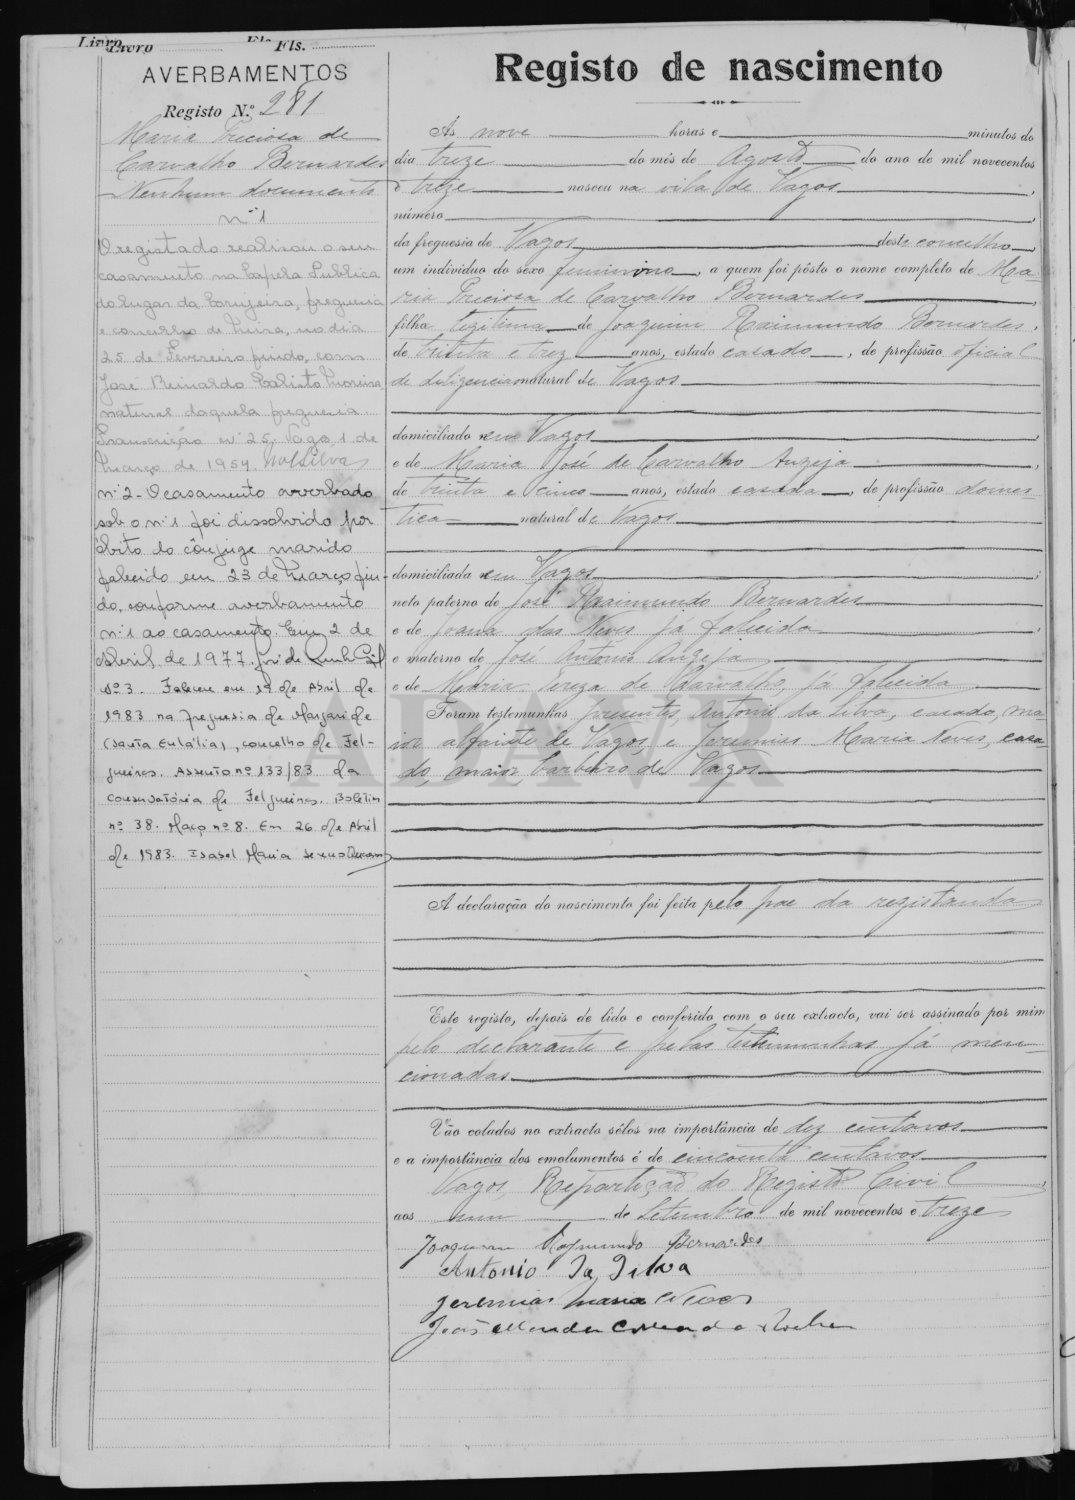 Livro Fls.
Livro Fls.
AVERBAMENTOS
Registo N.º 281
Maria Preciosa de
Carvalho Bernardes
Nenhum documento
nº 1
O registado realizou o seu
casamento na Capela Publica
do lugar da, freguesia
e concelho de, no dia
25 de Fevereiro findo, com
José Reinaldo Calisto Moreira
natural daquela freguesia.
Transcrição nº 25. Vagos, 1 de
Março de 1954.
nº 2 - O casamento averbado
sob o nº 1 foi dissolvido por
óbito do cônjuge marido
falecido em 23 de Março fin-
do, conforme averbamento
nº 1 ao casamento. Em 2 de
Abril de 1977.
Nº 3. Faleceu em 19 de Abril de
1983 na freguesia de Margaride
(Santa Eulália), concelho de Fel-
gueiras. Assento nº 133/83 da
conservatória de Felgueiras. Boletim
nº 38. Maço nº 8. Em 26 de Abril
de 1983. Isabel Maria
Registo de nascimento
Ás nove horas e minutos do
dia treze do mês de Agosto do ano de mil novecentos
e treze nasceu na vila de Vagos,
número,
da freguesia de Vagos deste concelho,
um individuo do sexo feminino, a quem foi pôsto o nome completo de Ma-
ria Preciosa de Carvalho Bernardes,
filha legitima de Joaquim Raimundo Bernardes,
de trinta e trez anos, estado casado, de profissão oficial
de deligencias natural de Vagos
domiciliado em Vagos,
e de Maria José de Carvalho Angeja,
de trinta e cinco anos, estado casada, de profissão domes-
tica natural de Vagos
domiciliada em Vagos;
neto paterno de José Raaimundo Bernardes
e de Joana das Neves já falecida,
e materno de José Antonio Angeja
e de Maria Tereza de Carvalho, já falecida
Foram testemunhas presentes, Antonio da Silva, casado, ma-
ior alfaiate de Vagos e Jeremias Maria Neves, casa-
do, maior, barbeiro de Vagos
ADAVR
A declaração do nascimento foi feita pelo pae da registanda
Este registo, depois de lido e conferido com o seu extracto, vai ser assinado por mim
pelo declarante e pelas testemunhas já men-
cionadas
Vão colados no extracto sêlos na importância de dez centavos
e a importância dos emolumentos é de cincoenta centavos
Vagos, Repartição do Registo Civil,
aos um de Setembro de mil novecentos e treze
Joaquim Raymundo Bernardes
Antonio da Silva
Jeremias Maria Neves
João